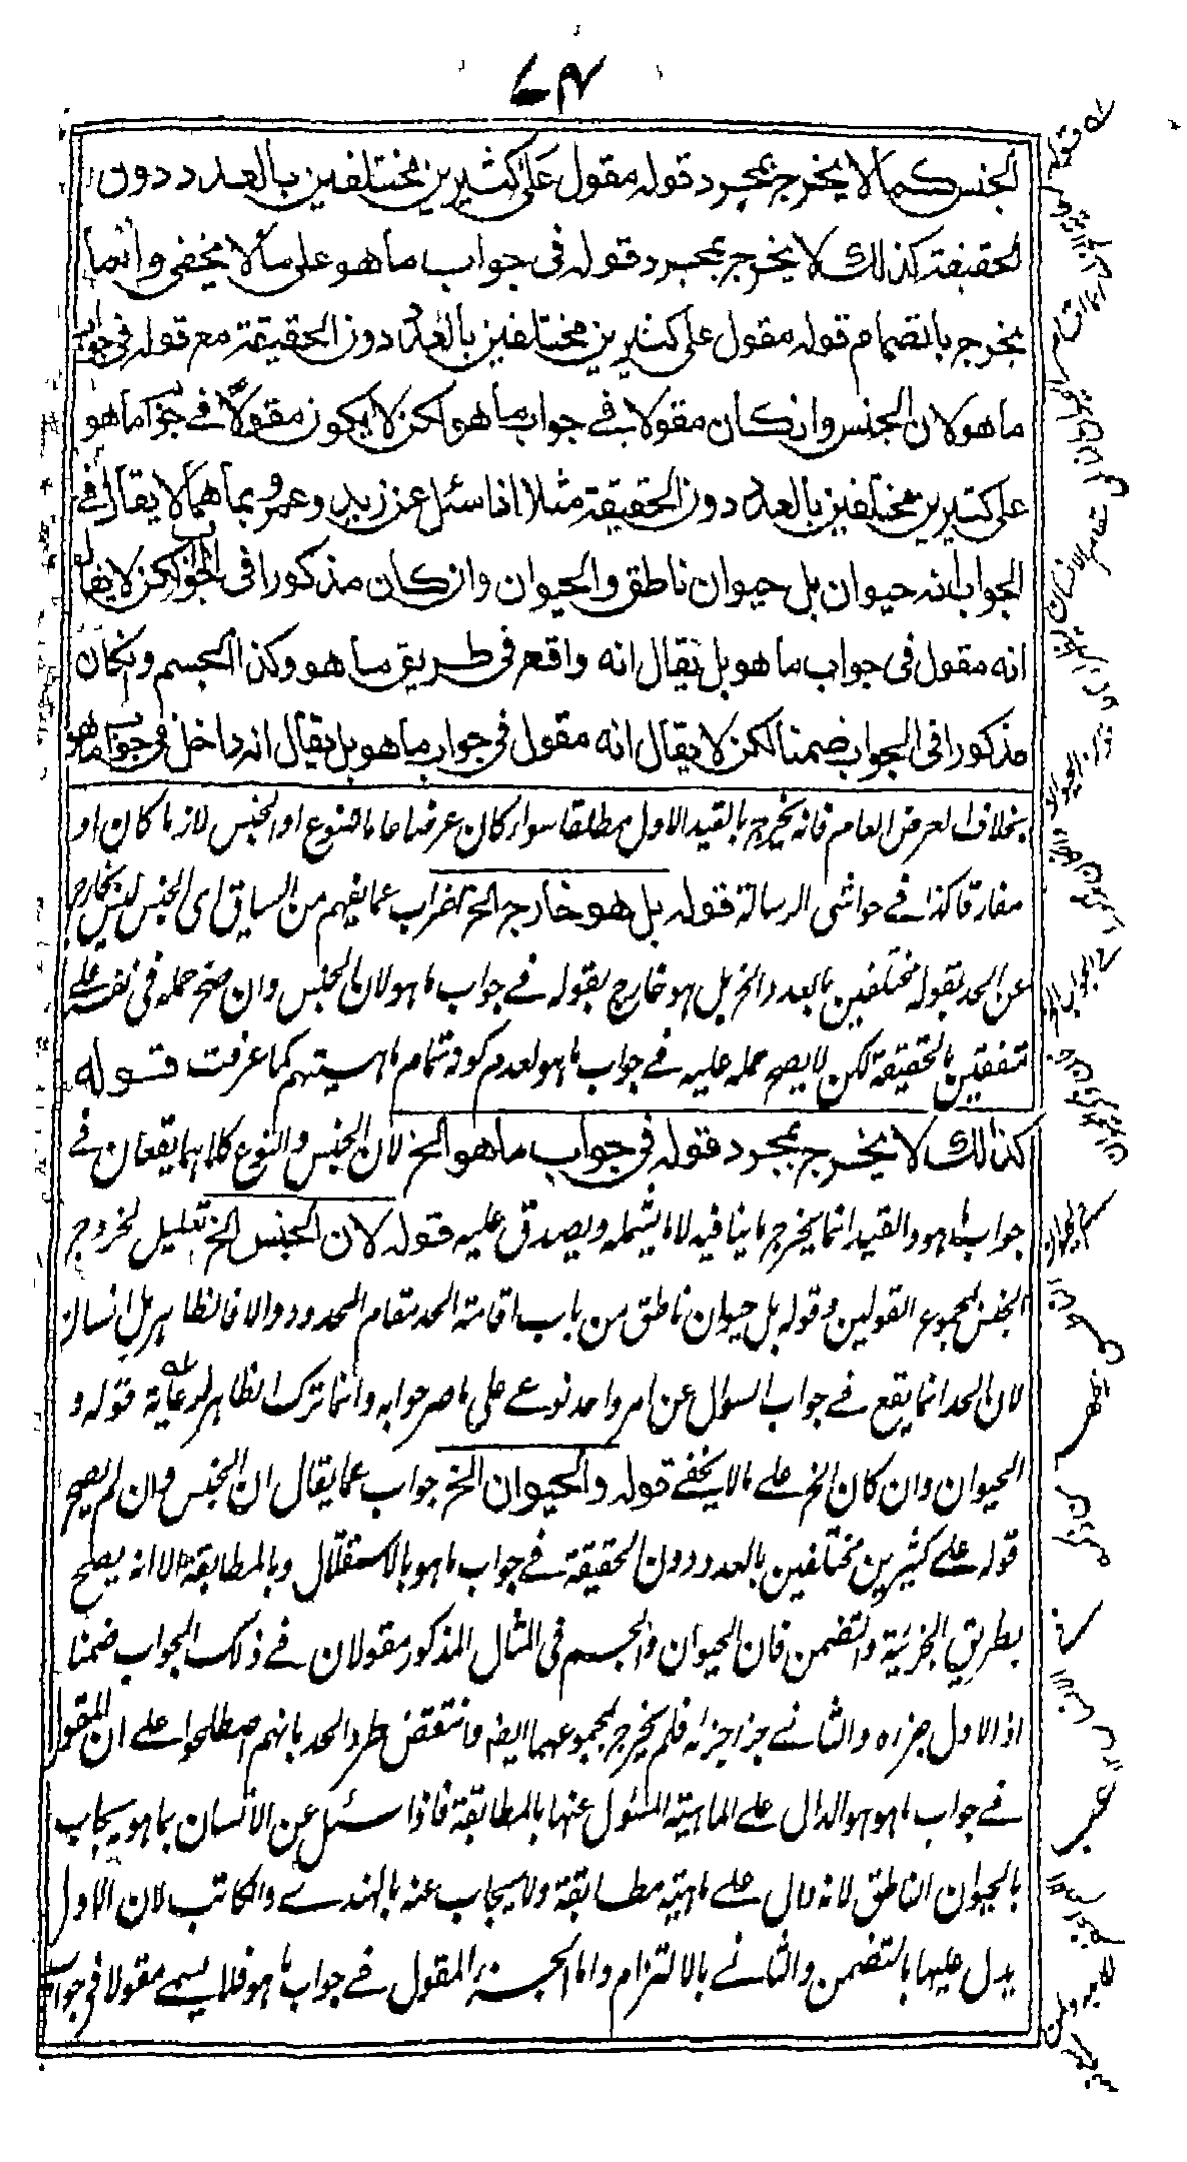 ٧٤
الجنس كما لا يخرج بمجرد قوله مقول على كثيرين مختلفين بالعدد دون
الحقيقة كذلك لا يخرج بمجرد قوله فى جواب ما هو على ما لا يخفى وانما
يخرج بانضمام قوله مقول على كثيرين مختلفين بالعدد دون الحقيقة مع قوله فى جواب
ما هو لان الجنس وان كان مقولا فى جواب ما هو لكن لا يكون مقولا فى جواب ما هو
على كثيرين مختلفين بالعدد دون الحقيقة مثلا اذا سئل عن زيد وعمرو بما هما لا يقال فى
الجواب انه حيوان بل حيوان ناطق والحيوان وان كان مذكورا فى الجواب لكن لا يقال
انه مقول فى جواب ما هو بل يقال انه واقع فى طريق ما هو وكذا الجسم وان كان
مذكورا فى الجواب ضمنا لكن لا يقال انه مقول فى جواب ما هو بل يقال انه داخل فى جواب ما هو
بخلاف العرض العام فانه يخرج بالقيد الاول مطلقا سواء كان عرضا عاما للنوع او الجنس لازما كان او
مفارقا كذا فى حواشى الرسالة قوله بل هو خارج الخ اضراب عما يفهم من السياق اى الجنس ليس بخارج
عن الحد بقوله مختلفين بالعدد الخ بل هو خارج بقوله فى جواب ما هو لان الجنس وان صح حمله فى نفسه على
متفقين بالحقيقة لكن لا يصح حمله عليه فى جواب ما هو لعدم كونه تمام ماهيتهم كما عرفت قوله
كذلك لا يخرج بمجرد قوله فى جواب ما هو الخ لان الجنس والنوع كلاهما يقعان فى
جواب ما هو والقيد انما يخرج ما ينافيه لا ما يشمله ويصدق عليه قوله لان الجنس الخ تعليل لخروج
الجنس بمجموع القولين وقوله بل حيوان ناطق من باب اقامة الحد مقام المحدود والا فالظاهر بل انسان
لان الحد انما يقع فى جواب السؤال عن امر واحد نوعى على ما صر حوا به وانما ترك الظاهر لرعاية قوله و
الحيوان وان كان الخ على ما لا يخفى قوله والحيوان الخ جواب عما يقال ان الجنس وان لم يصح
قوله على كثيرين مختلفين بالعدد دون الحقيقة فى جواب ما هو بالاستقلال وبالمطابقة الا انه يصلح
بطريق الجزئية والتضمن فان الحيوان والجسم فى المثال المذكور مقولان فى ذلك الجواب ضمنا
اذ الاول جزءه والثانى جزء جزئه فلم يخرج بمجموعهما ايضا فانتقض طرد الحد بانهم اصطلحوا على ان المقول
فى جواب ما هو هو الدال على الماهية المسئول عنها بالمطابقة فاذا سئل عن الانسان بما هو يجاب
بالحيوان الناطق لانه دال على ماهيته مطابقة ولا يجاب عنه بالهندى والكاتب لان الاول
يدل عليها بالتضمن والثانى بالالتزام واما الجزء المقول فى جواب ما هو فلا يسمى مقولا فى جواب